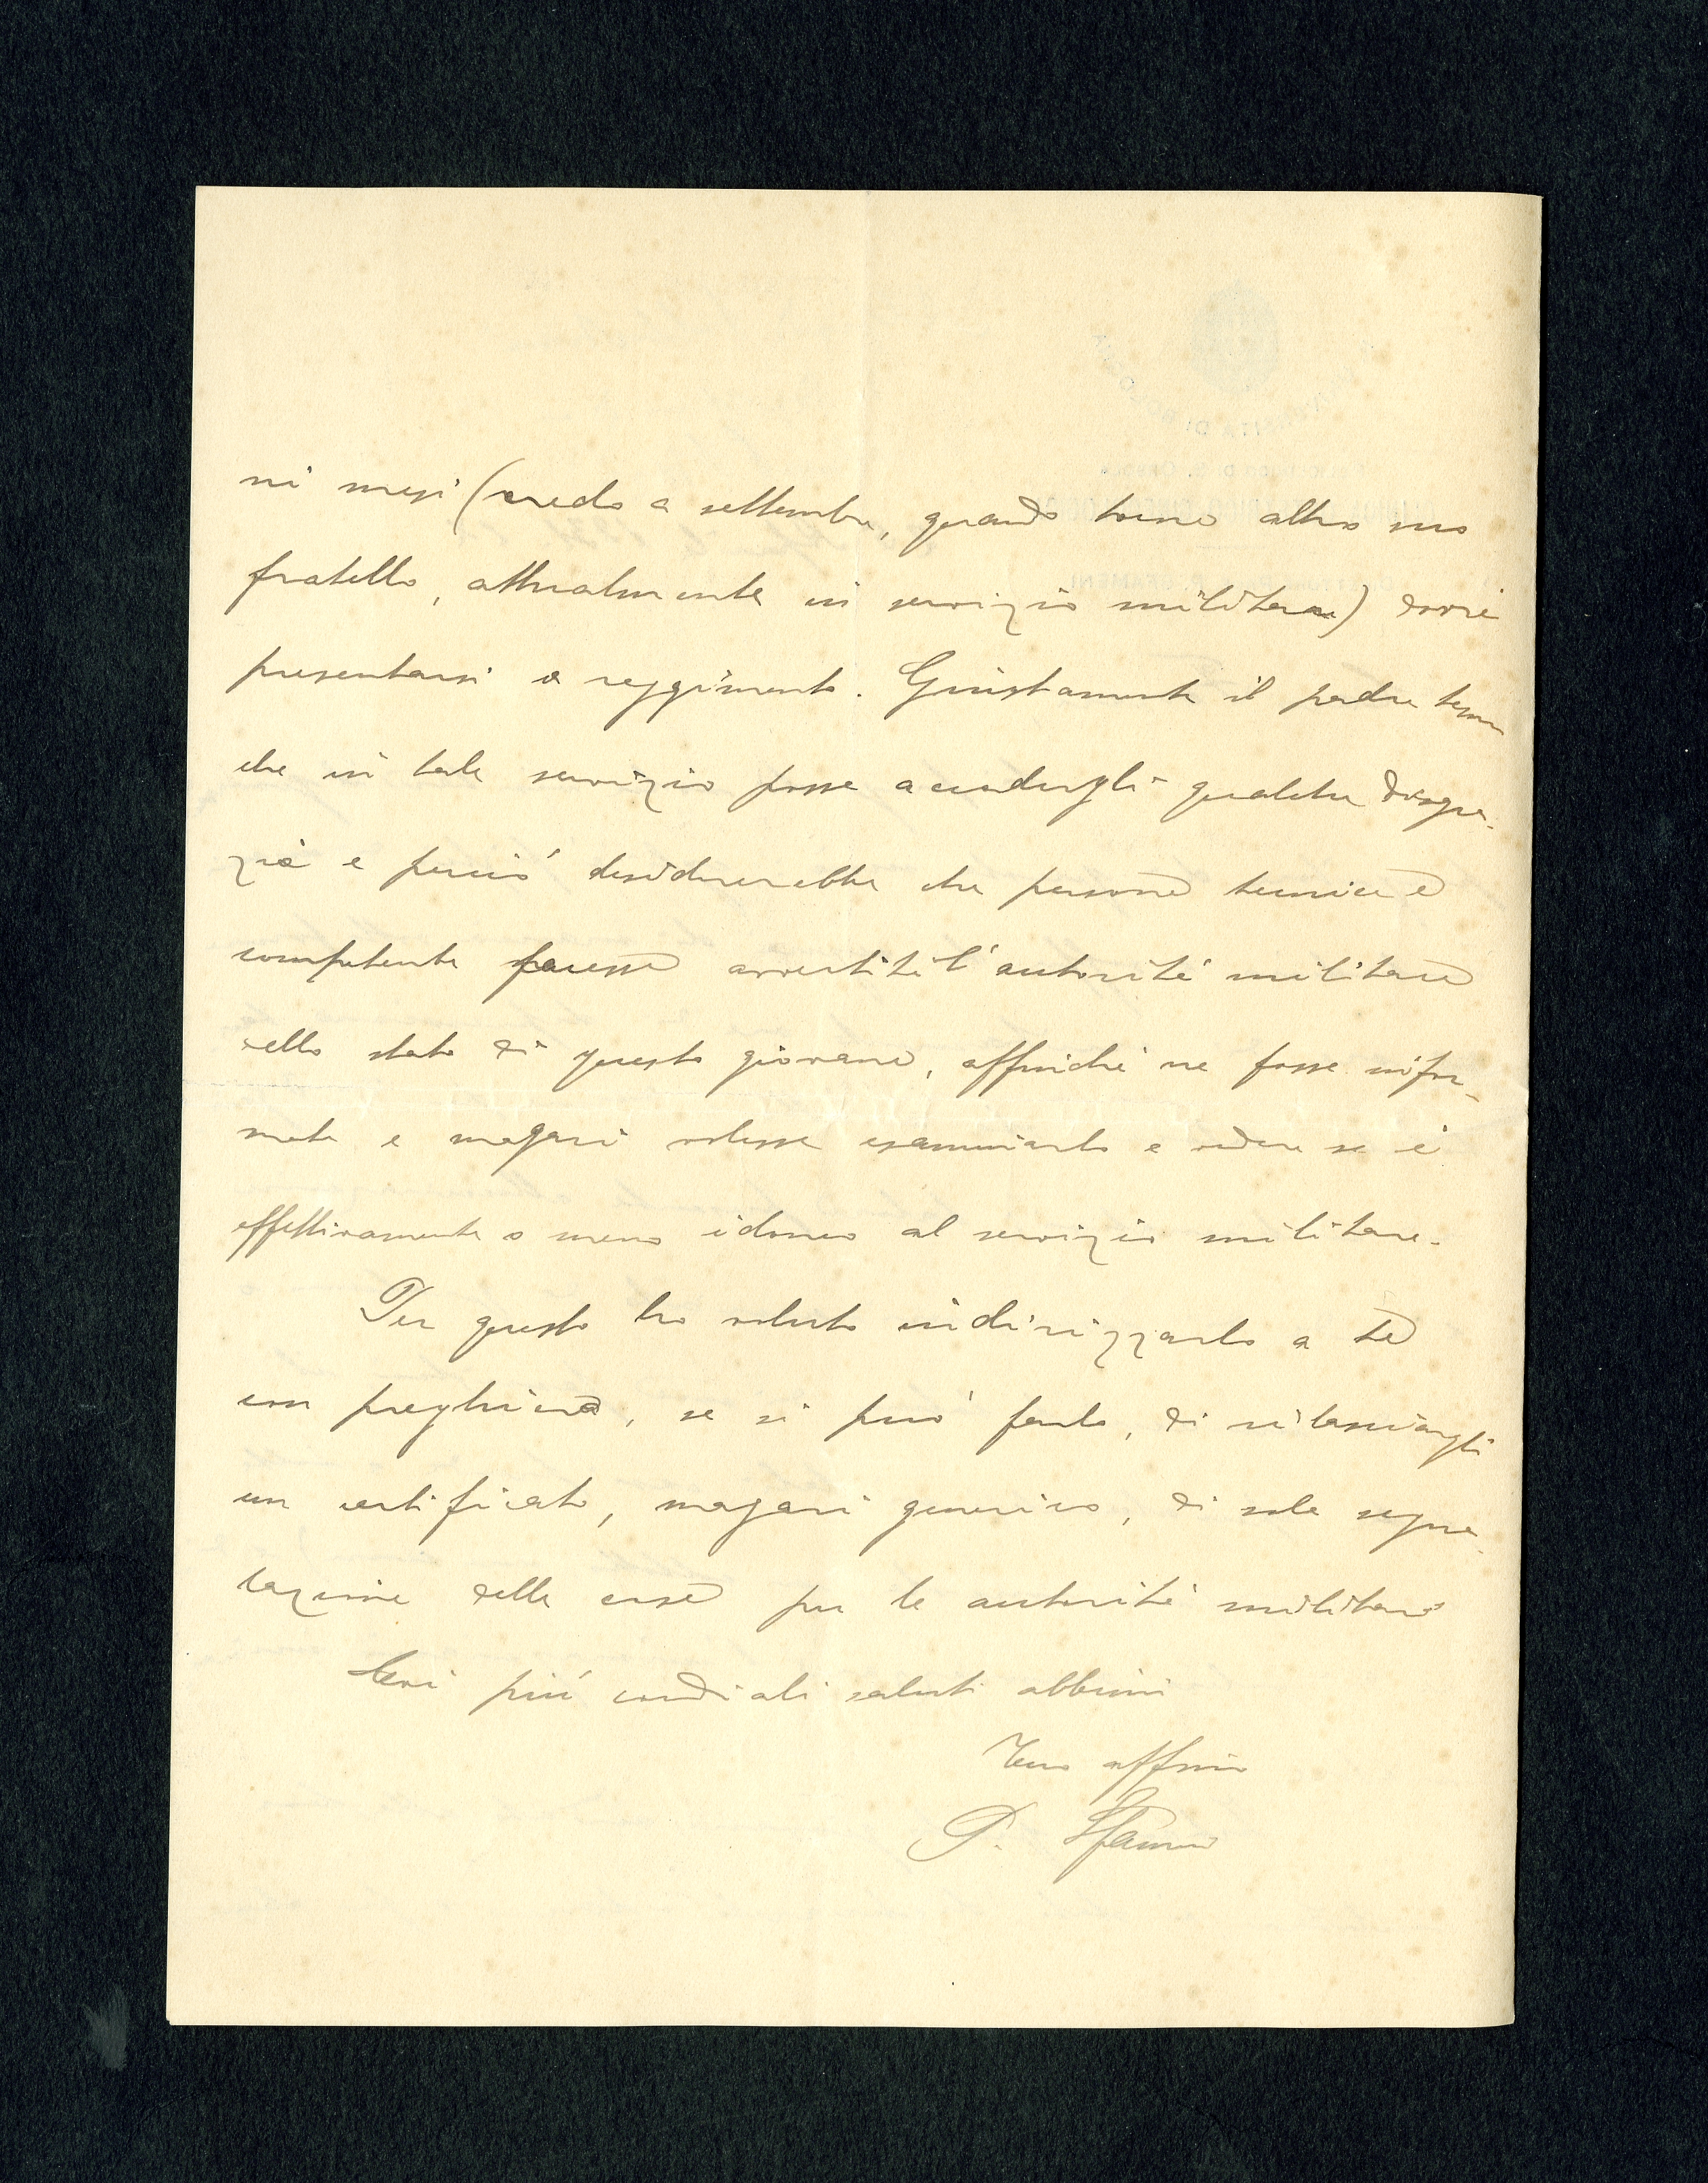 ni mesi (credo a settembre, quando torna altro suo
fratello, attualmente in servizio militare) dovrà
presentarsi a reggimento. Giustamente il padre teme
che in tale servizio posse accadergli qualche disgra-
zia e perciò desidererebbe che persona tecnica e
competente facesse avvertite l'autorità militare
dello stato di questo giovane, affinché ne fosse infor-
mata e magari volesse esaminarlo e vedere se è
effettivamente o meno idoneo al servizio militare.
Per questo ho voluto indirizzarlo a te
con preghiera, se si può farlo, di rilasciargli
un certificato, magari generico, di sola segna-
lazione della cosa per le autorità militari
Coi più cordiali saluti abbimi
Tuo affmo
P.